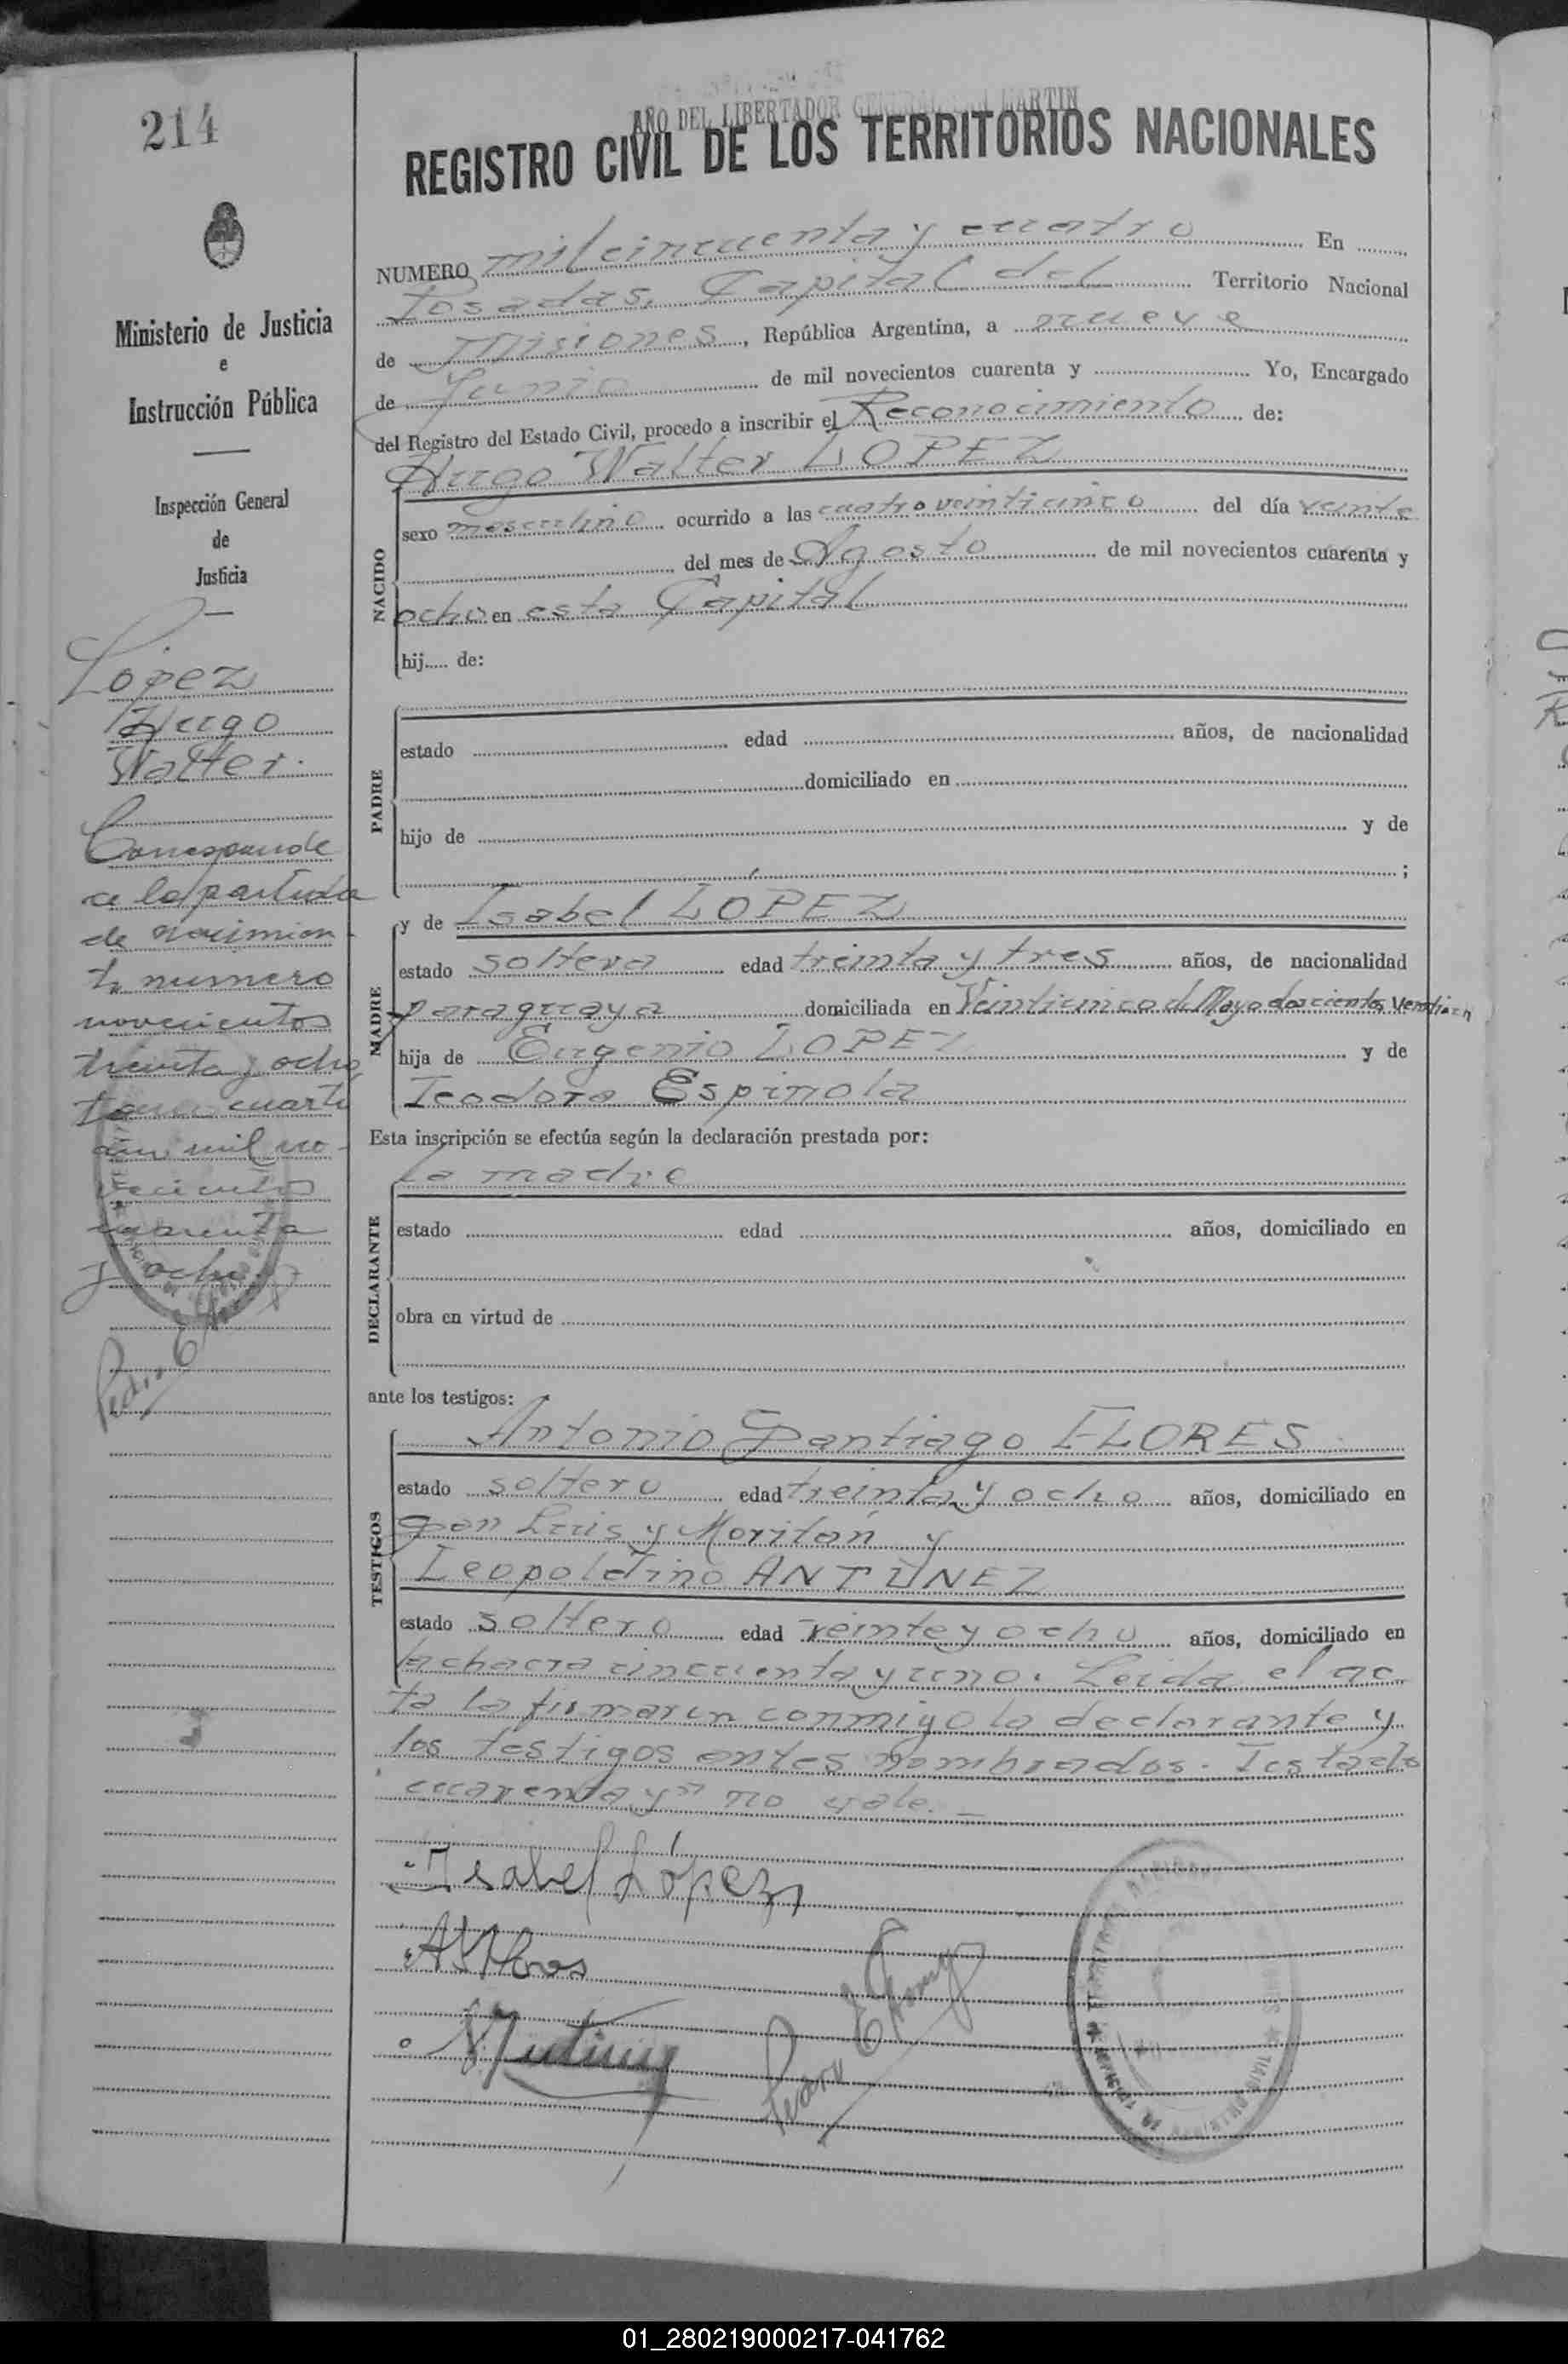 214
Ministerio de Justicia
e
Instrucción Pública
Inspección General
de
Justicia
López
Hugo
Walter.
Corresponde
a la partida
de nacimien-
to numero
novecientos
treinta y ocho
tomo cuarto
año mil no-
vecientos
cuarenta
y ocho.
Pedro
AÑO DEL LIBERTADOR GENERAL SAN MARTIN
REGISTRO CIVIL DE LOS TERRITORIOS NACIONALES
NUMERO mil cincuenta y cuatro En
Posadas, Capital del Territorio Nacional
de Misiones, República Argentina, a nueve
de Junio de mil novecientos cuarenta y Yo, Encargado
del Registro del Estado Civil, procedo a inscribir el Reconocimiento de:
Hugo Walter LOPEZ
NACIDO
sexo masculino ocurrido a las cuatro veinticinco del día veinte
del mes de Agosto de mil novecientos cuarenta y
ocho en esta Capital
hij..... de:
PADRE
estado edad años, de nacionalidad
domiciliado en
hijo de y de
;
MADRE
y de Isabel LOPEZ
estado soltera edad treinta y tres años, de nacionalidad
paraguaya domiciliada en Veinticinco de Mayo doscientos
hija de Eugenio LOPEZ y de
Teodora Espinola
Esta inscripción se efectúa según la declaración prestada por:
La madre
DECLARANTE
estado edad años, domiciliado en
obra en virtud de
ante los testigos:
TESTIGOS
Antonio Santiago FLORES
estado soltero edad treinta y ocho años, domiciliado en
San Luis y Moritán y
Leopoldino ANTUNEZ
estado soltero edad veinte y ocho años, domiciliado en
la chacra cincuenta y uno. Leida el ac-
ta la firmaron conmigo la declarante y
los testigos antes nombrados. Testado
"cuarenta y" no vale. —
Isabel López
A S Flores
01_280219000217-041762